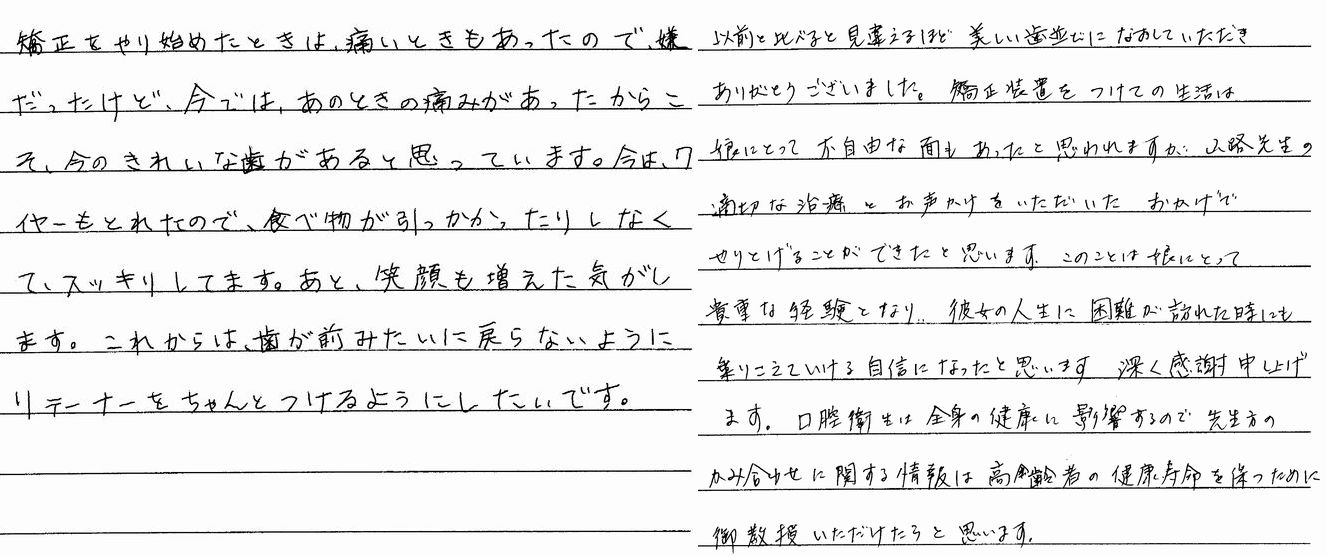 矯正をやり始めたときは、痛いときもあったので、嫌
だったけど、今では、あのときの痛みがあったからこ
そ、今のきれいな歯があると思っています。今は、ワ
イヤーもとれたので、食べ物が引っかかったりしなく
て、スッキリしてます。あと、笑顔も増えた気がし
ます。これからは、歯が前みたいに戻らないように
リテーナーをちゃんとつけるようにしたいです。
以前と比べると見違えるほど美しい歯並びになおしていただき
ありがとうございました。矯正装置をつけての生活は
娘にとって不自由な面もあったと思われますが、山路先生の
適切な治療とお声かけをいただいたおかげで
やりとげることができたと思います。このことは娘にとって
貴重な経験となり、彼女の人生に困難が訪れた時にも
乗りこえていける自信になったと思います 深く感謝申し上げ
ます。口腔衛生は全身の健康に影響するので先生方の
かみ合わせに関する情報は高齢者の健康寿命を保つために
御教授いただけたらと思います。